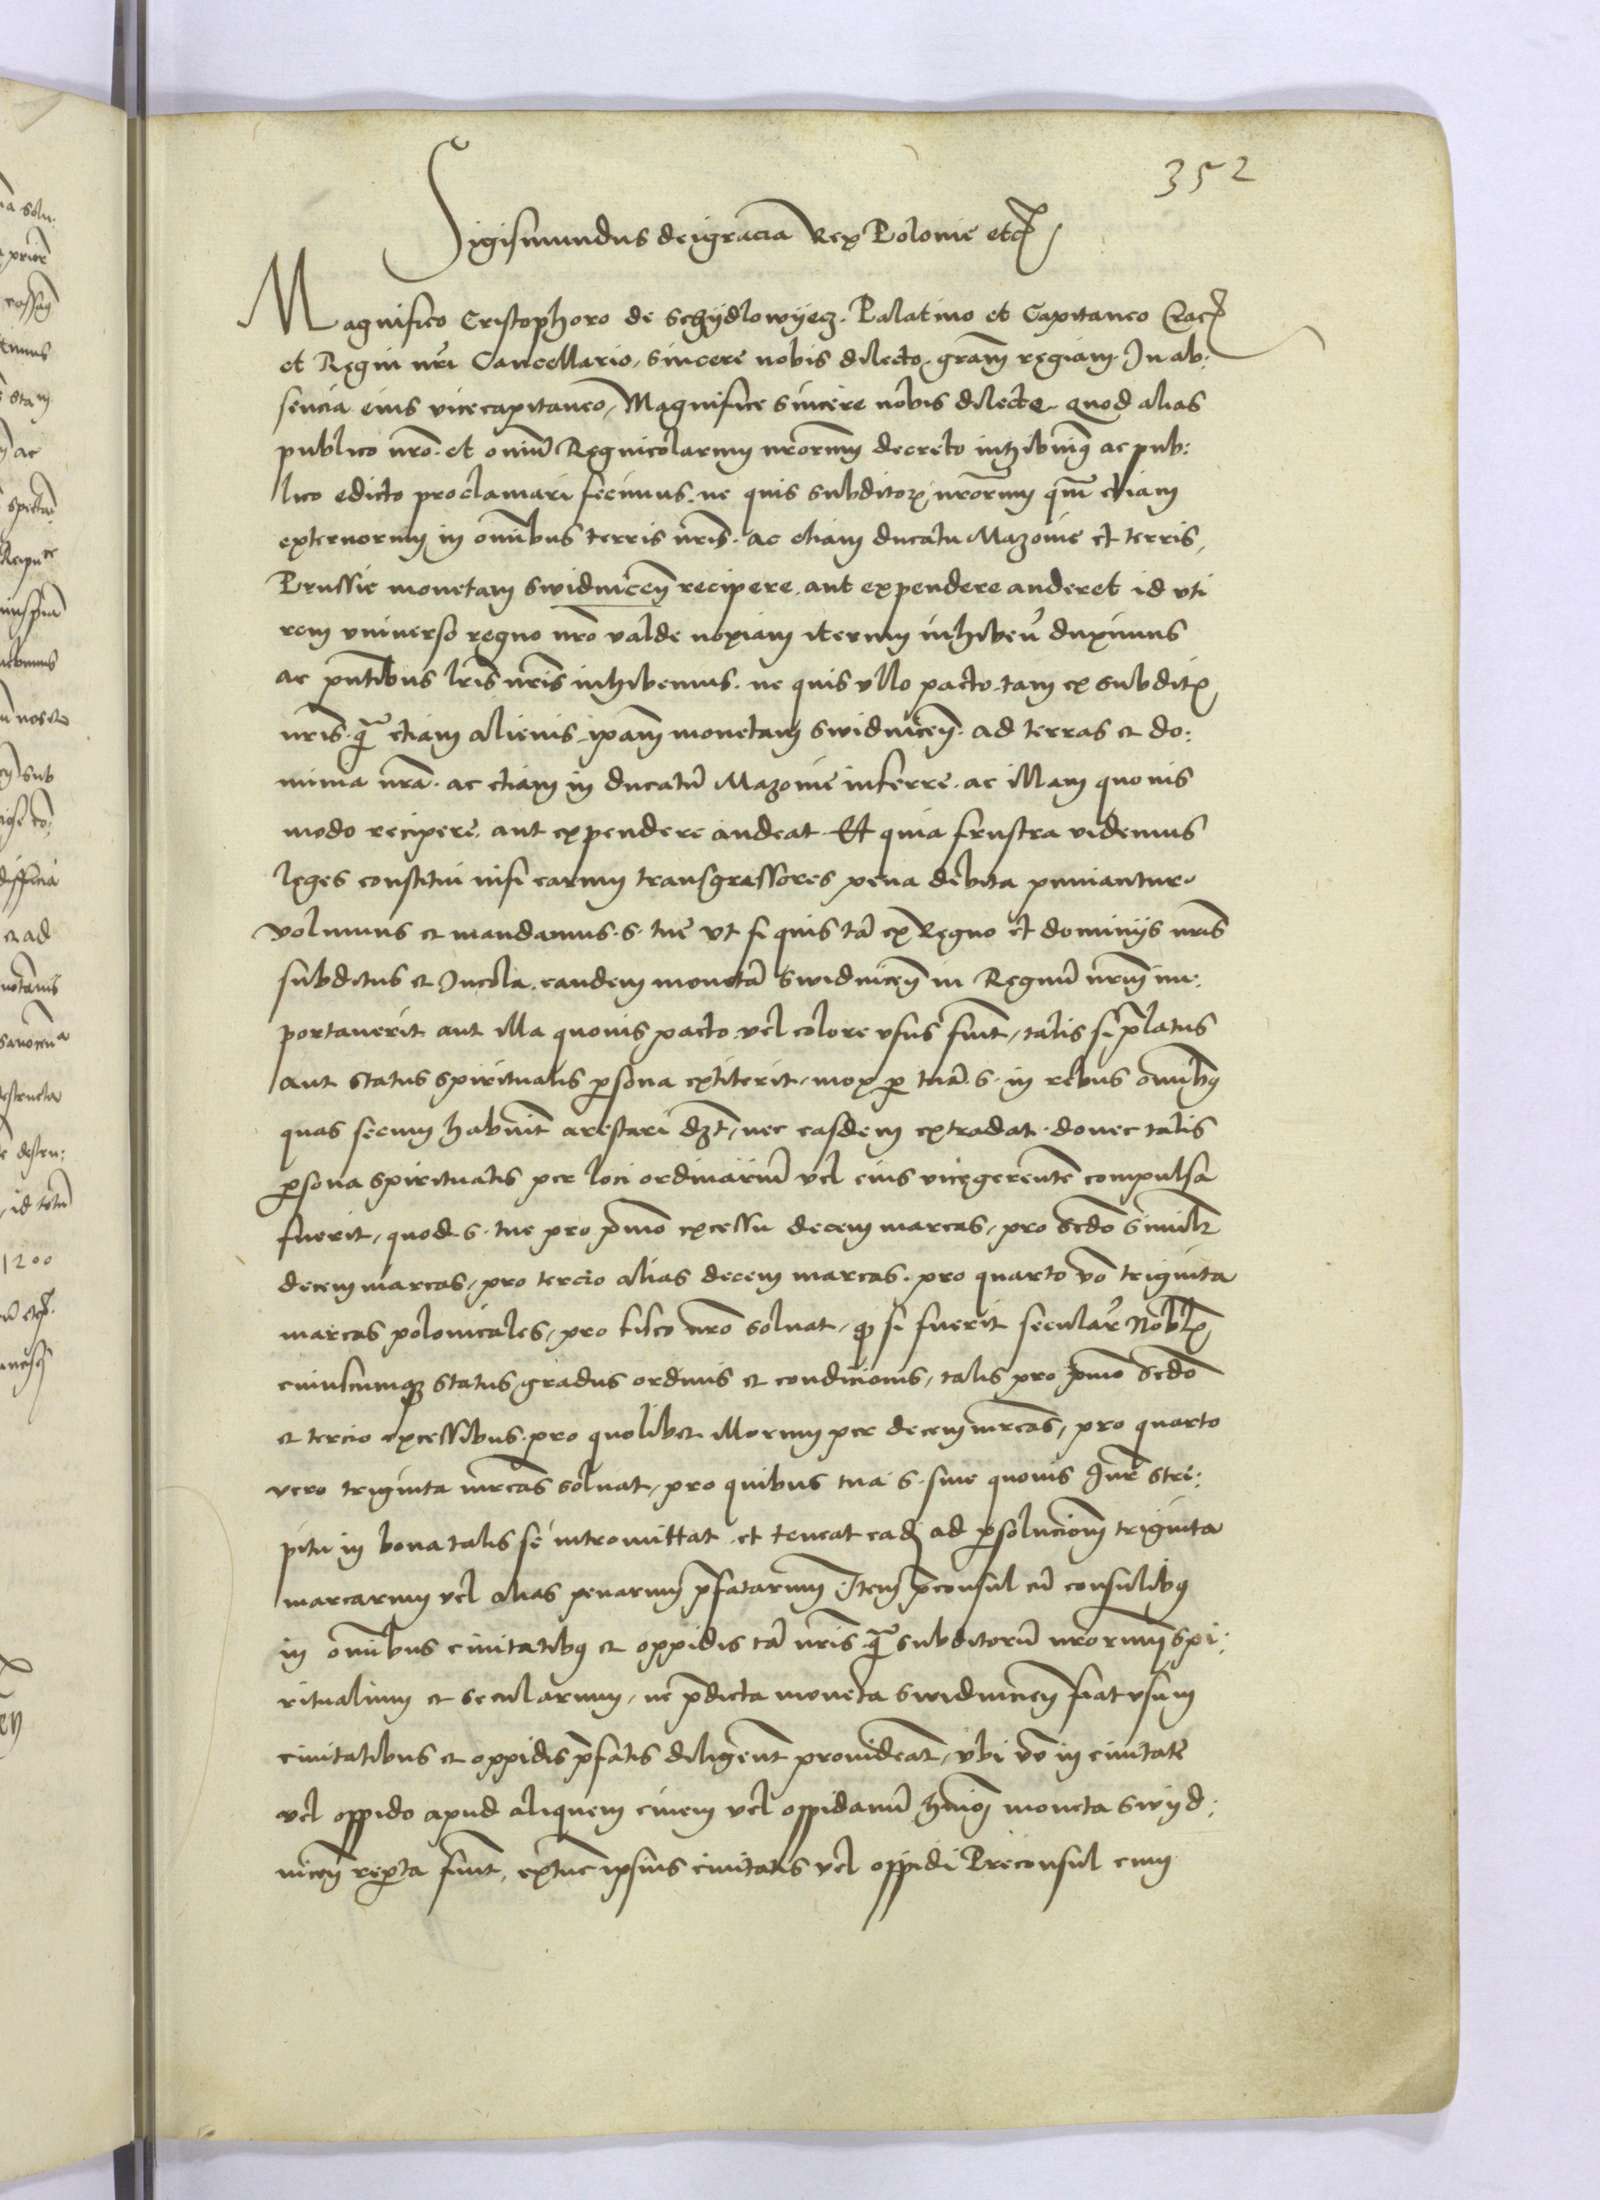 352
Sigismundus dei gracia Rex Polonie etc
Magnifico Cristophoro de Schydlowyecz. Palatino et Capitaneo Crac
et Regni nri Cancellario, sincere nobis dilecto. gram regiam. In ab:
sencia eius vicecapitaneo, Magnifice sincere nobis dilecte. Quod alias
publico nro. et omniu Regnicolarum nrorum decreto inhibuimus ac pub:
lico edicto proclamari fecimus. ne quis subditorum nrorum qm etiam
externorum in omnibus terris nris. ac etiam ducatu Mazovie et terris,
Prussie monetam swidnicen recipere. aut expendere auderet id vti
rem vniverso regno nro valde noxiam iterum inhiben duximus
ac pntibus lris nris inhibemus. ne quis vllo pacto. tam ex subditis
nris. qm etiam alienis ipam monetam swidnicen. ad terras et do:
minia nra. ac etiam in ducatu Mazovie inferre. ac illam quovis
modo recipere. aut expendere audeat. Et quia frustra videmus
leges constitui nisi earum transgressores pena debita puniantur.
volumus et mandamus. s. tue vt si quis ta ex Regno et dominijs nris
subditus et Incola. eandem moneta swidnicen in Regnu nrm im:
portaverit aut illa quovis pacto vel colore vsus fuit, talis si platus
aut status spiritualis psona extiterit. mox p tua. s. in rebus omnibus
quas secum habuit arestari dzt, nec easdem extradat. donec talis
psona spiritualis per loci ordinariu vel eius vicegerente compulsa
fuerit, quod s. tue pro pmo excessu decem marcas, pro scdo similr
decem marcas, pro tercio alias decem marcas. pro quarto vo triginta
marcas polonicales, pro fisco nro solvat, qd si fuerit secular Noblis
cuiuscumque status, gradus ordinis et condicionis, talis pro pmo scdo
et tercio excessibus. pro quolibet illorum per decem mrcas, pro quarto
vero triginta mrcas solvat, pro quibus tua. s. sine quovis Jure stre:
pitu in bona talis se intromittat. et teneat ead ad psolucionem triginta
marcarum vel alias penarum pfatarum. Item pconsul cu consulibus
in omnibus civitatibus et oppidis ta nris qm subditoru nrorum spi:
ritualium et secularium, ne pdicta moneta swidnicen fiat vsum
civitatibus et oppidis pfatis diligent provideat, vbi vo in civitate
vel oppido apud aliquem civem vel oppidanu hmoi moneta Swyd:
nicen repta fuit, extunc ipsius civitatis vel oppidi Preconsul cum